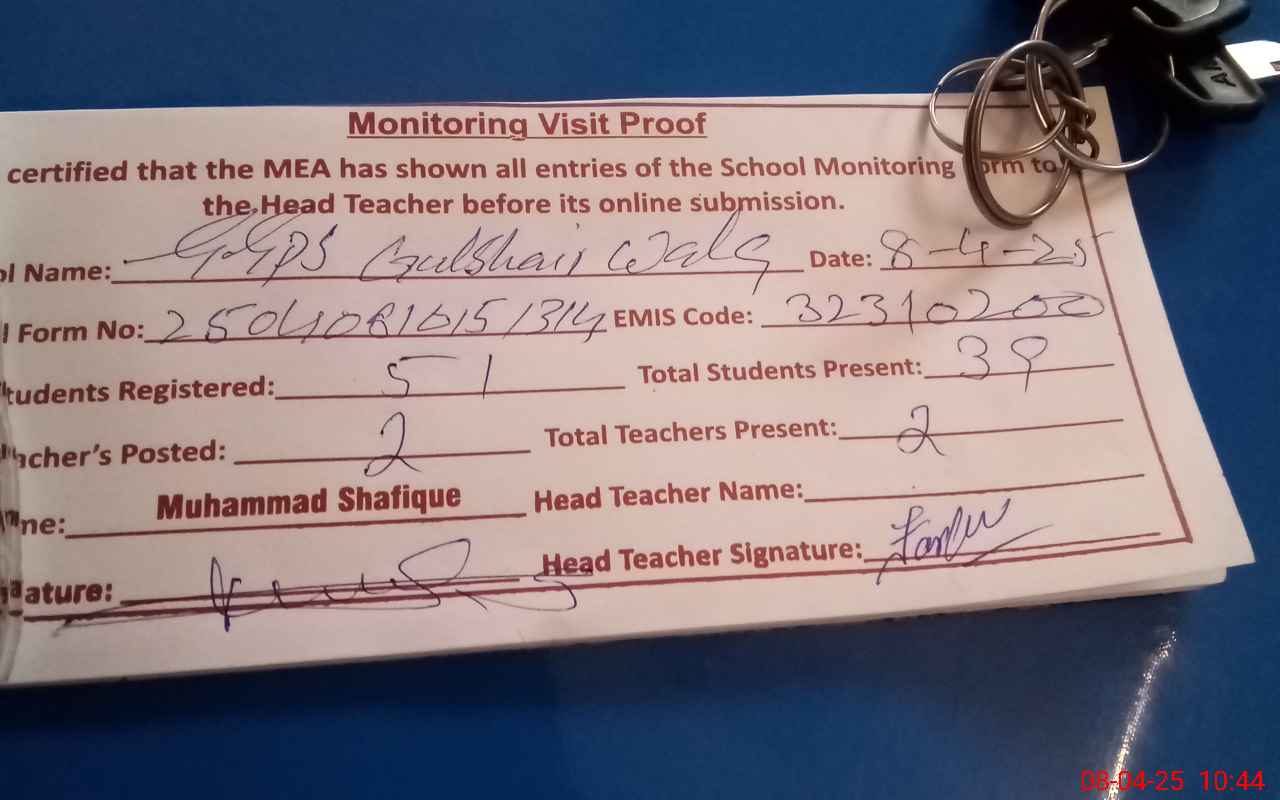 Monitoring Visit Proof
certified that the MEA has shown all entries of the School Monitoring Form to
the Head Teacher before its online submission.
l Name: GGPS Gulshair Wala Date: 8-4-25
l Form No: EMIS Code: 32310200
tudents Registered: 51 Total Students Present: 39
acher's Posted: 2 Total Teachers Present: 2
me: Muhammad Shafique Head Teacher Name:
ature: Head Teacher Signature:
08-04-25 10:44